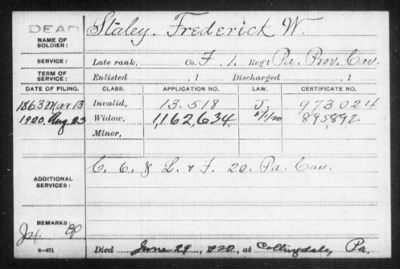 DEAD
NAME OF SOLDIER: Staley, Frederick W.
SERVICE: Late rank, Co. F, 1, Reg't Pa. Prov. Cav.
TERM OF SERVICE: Enlisted , 1 Discharged , 1
DATE OF FILING. CLASS. APPLICATION NO. LAW. CERTIFICATE NO.
1863 Mar 13 Invalid, 13.518 973024
1920. Aug 23 Widow, 1,162,634. 895892
Minor,
ADDITIONAL SERVICES: C. C. & L. & F. 20. Pa. Cav.
REMARKS:
Died June 29, 1920, at Collingdale, Pa.